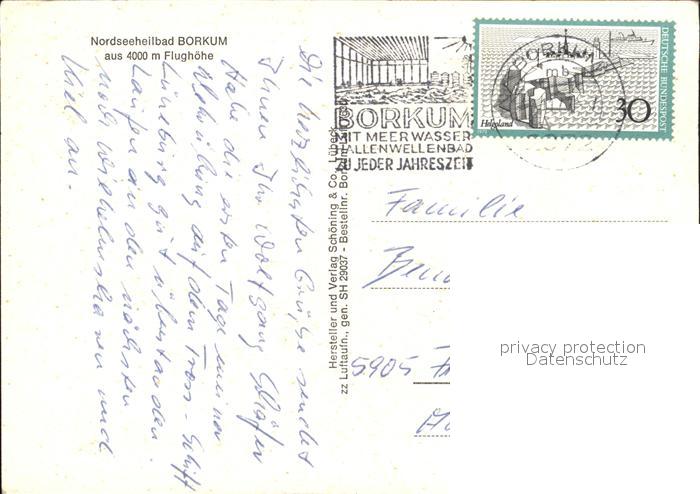 Nordseeheilbad BORKUM
aus 4000 m Flughöhe
Die herzlichsten Grüße sendet
Ihnen Ihr Wolfgang Schäfer
Habe die ersten Tage meiner
auf dem Tross-Schiff
Lüneburg gut überstanden.
Laufen an den nächsten
noch Wilhelmshaven und
Kiel an.
Hersteller und Verlag Schöning & Co., Lübeck
zz Luftaufn., gen. SH 29037 - Bestellnr. Bor
BORKUM
MIT MEERWASSER
HALLENWELLENBAD
ZU JEDER JAHRESZEIT
BORKUM
mb
Helgoland
30
DEUTSCHE BUNDESPOST
Familie
5905
privacy protection
Datenschutz